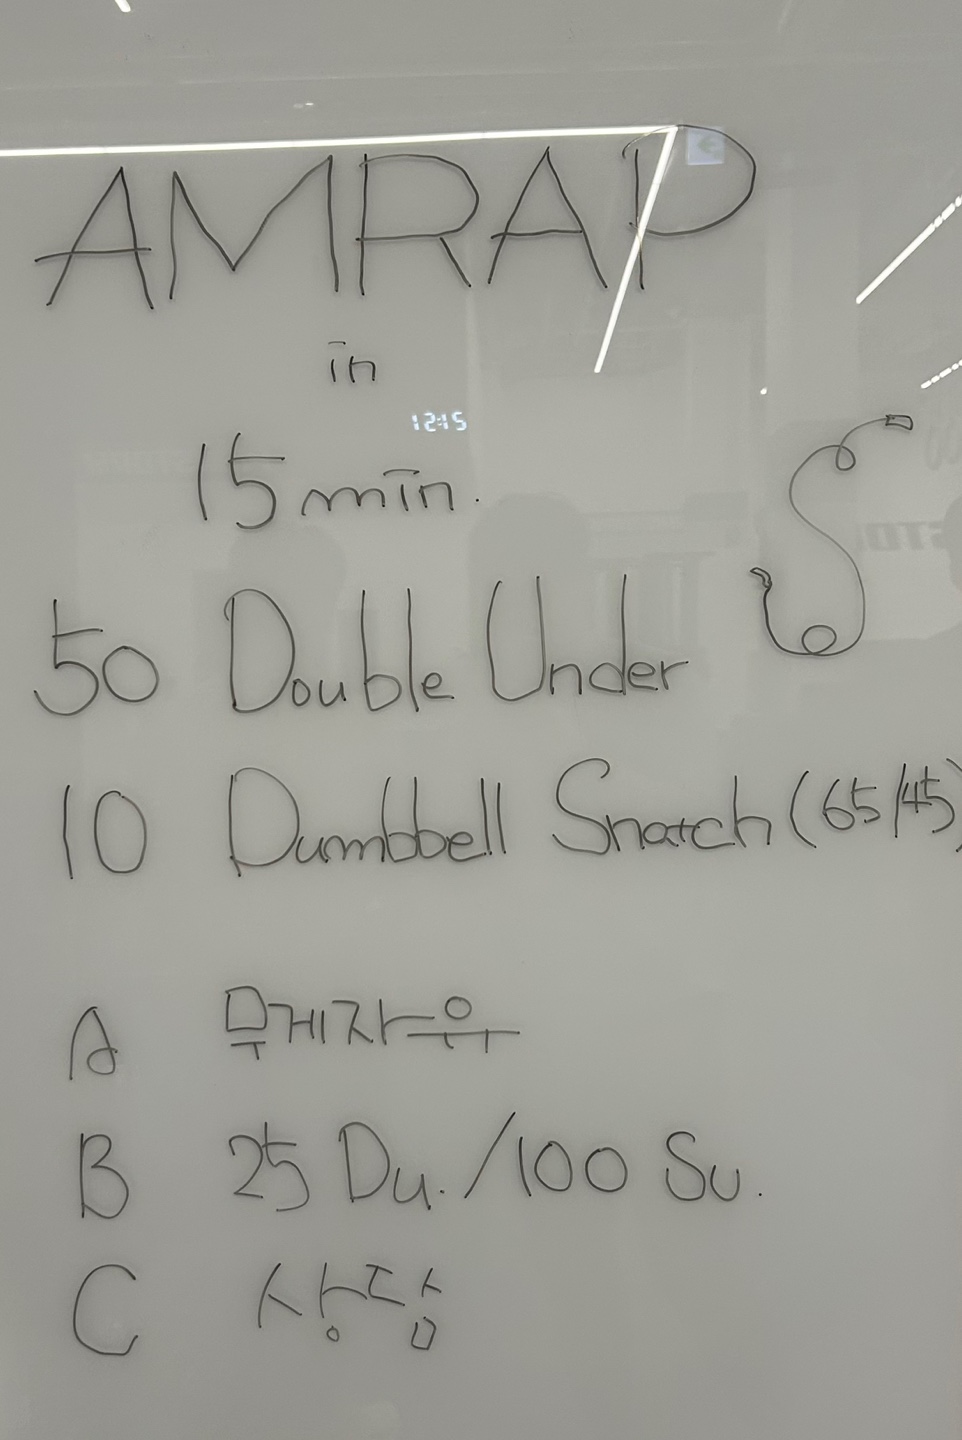 AMRAP
in
12:15
15 min.
50 Double Under
10 Dumbbell Snatch (65/45)
A 무게자유
B 25 Du. / 100 Su.
C 상담